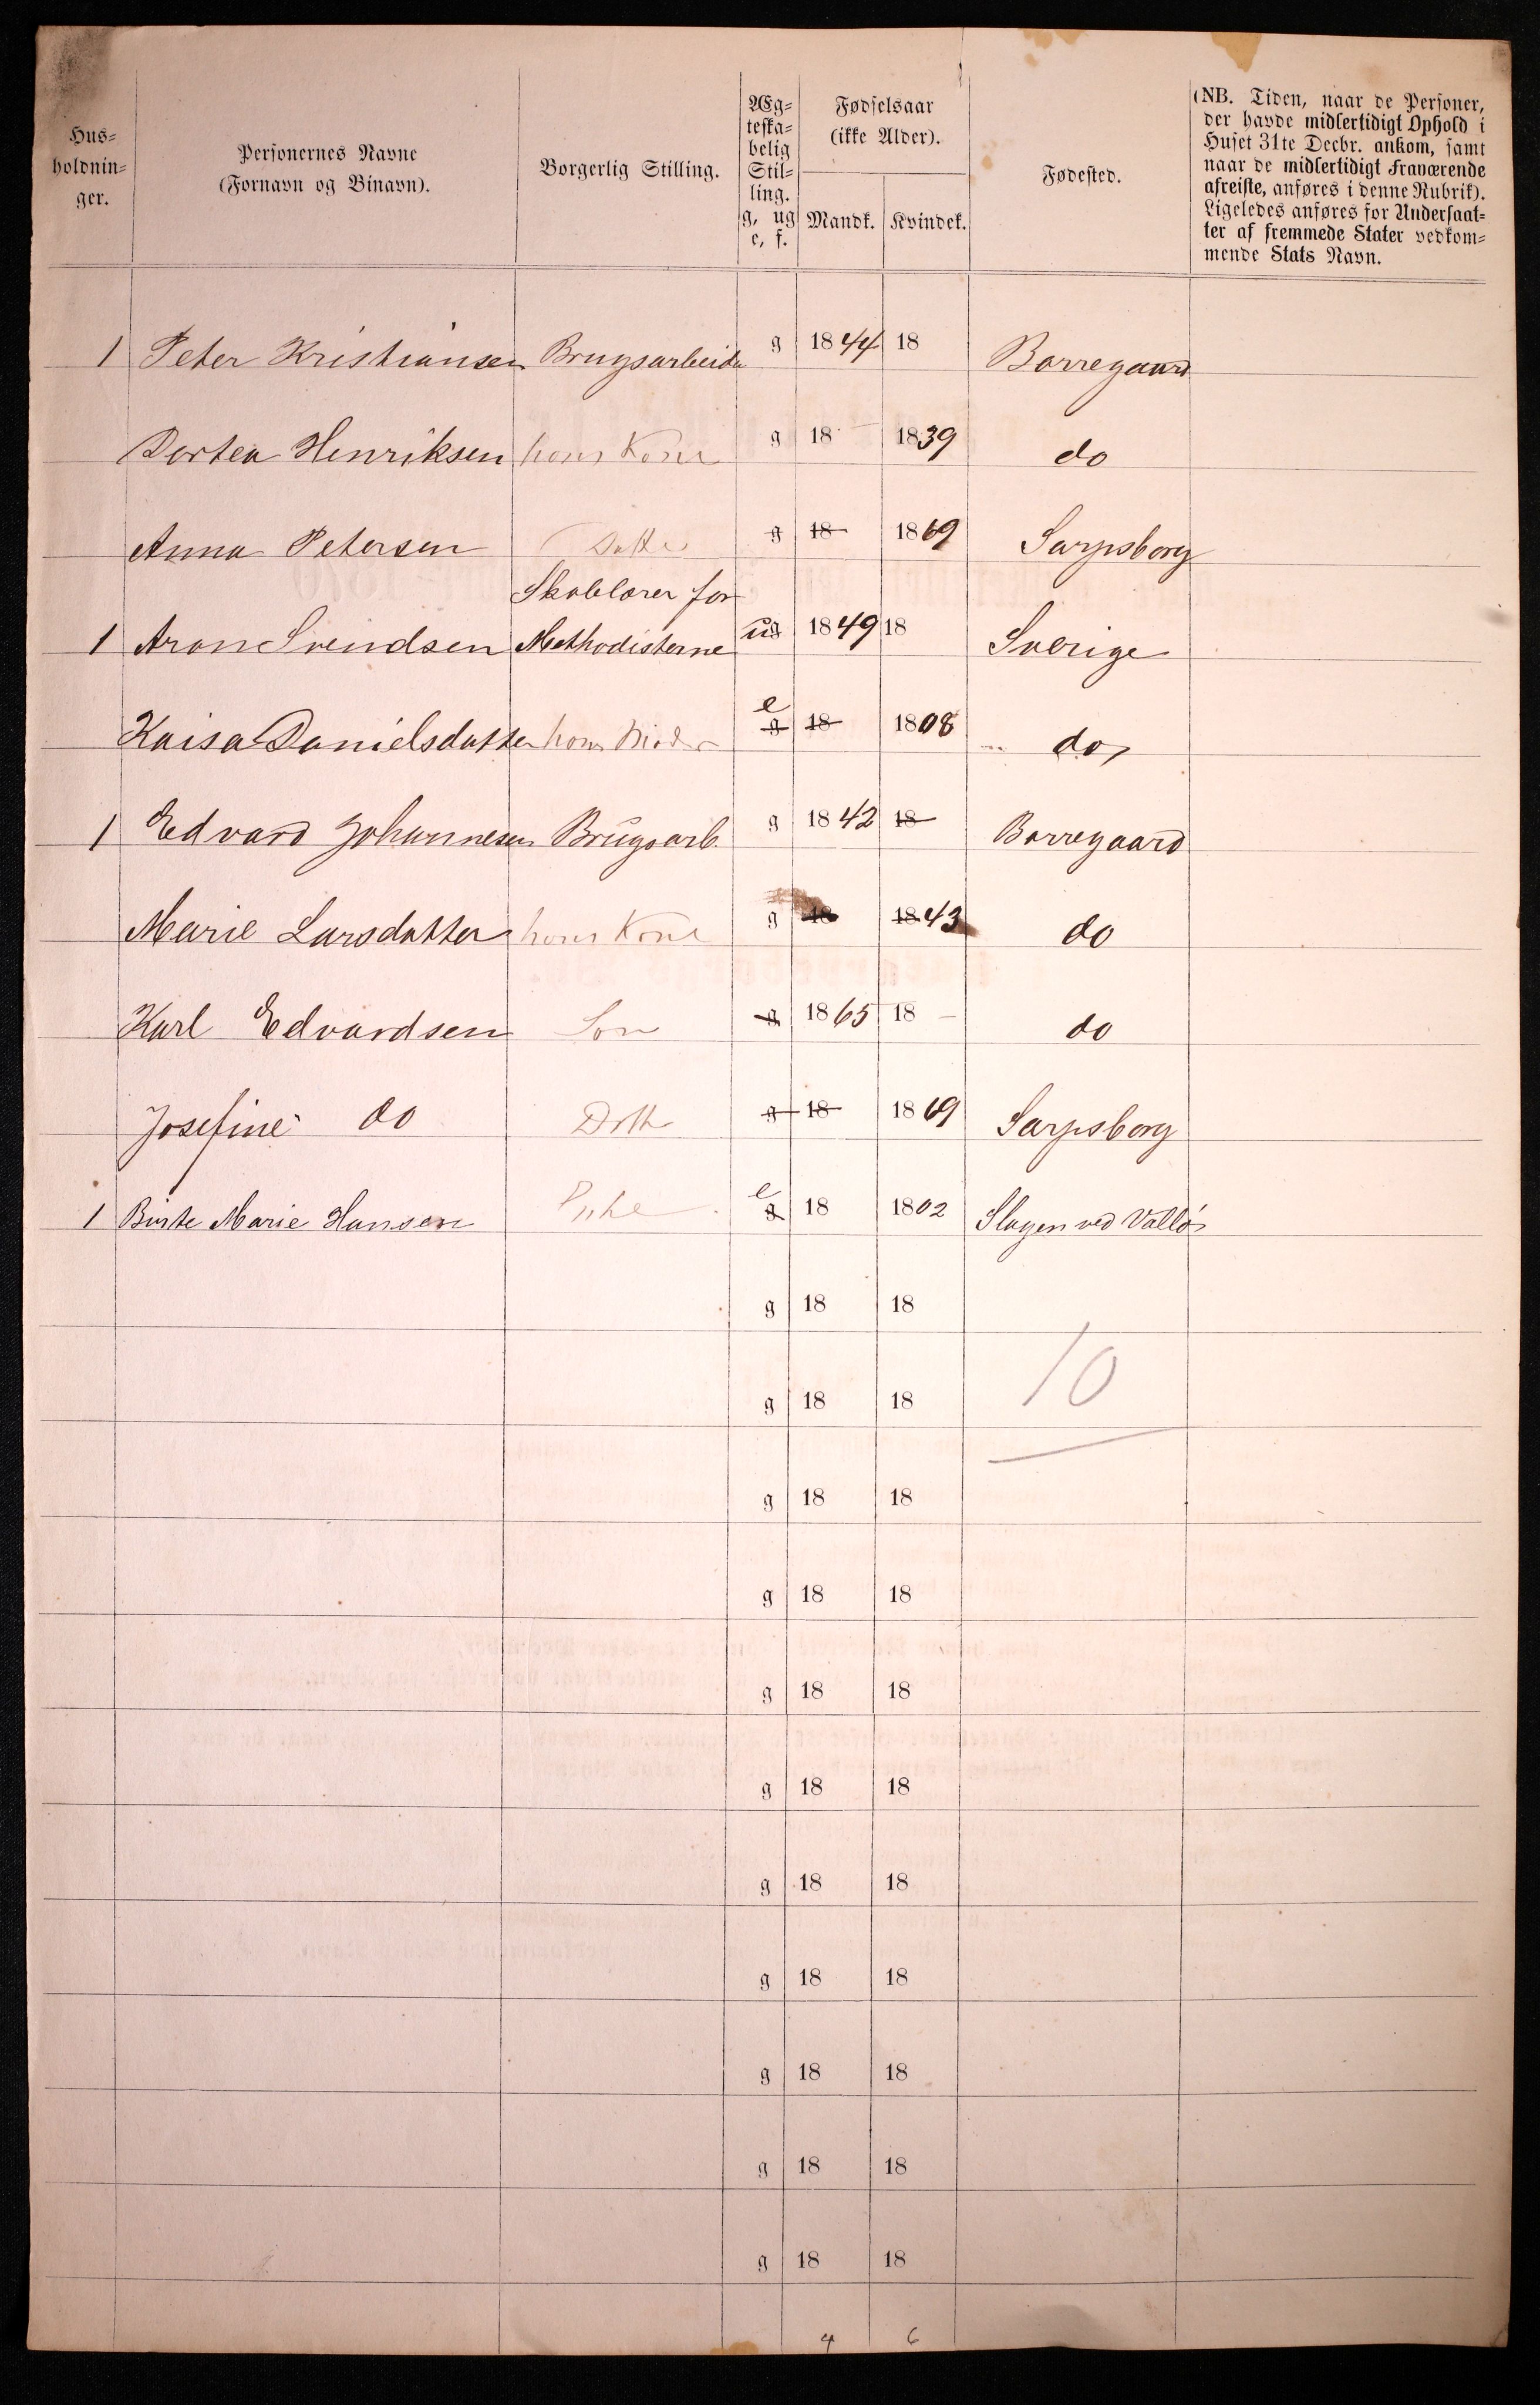 Hus-
holdnin-
ger.
Personernes Navne
(Fornavn og Binavn).
Borgerlig Stilling.
Æg-
teska-
belig
Stil-
ling.
g, ug
e, f.
Fødselsaar
(ikke Alder).
Mandk. Kvindek.
Fødested.
(NB. Tiden, naar de Personer,
der havde midlertidigt Ophold i
Huset 31te Decbr. ankom, samt
naar de midlertidigt Fraværende
afreiste, anføres i denne Rubrik).
Ligeledes anføres for Undersaat-
ter af fremmede Stater vedkom-
mende Stats Navn.
1 Peter Kristiansen Brugsarbeider g 1844 18 Borregaard
Dortea Henriksen hans Kone g 18 1839 do
Anna Petersen Datter g 18 1869 Sarpsborg
Skolelærer for
1 Aron Svendsen Methodisterne ug 1849 18 Sverige
e
Kaisa Danielsdatter hans Moder g 18 1808 do,
1 Edvard Johannesen Brugsarb. g 1842 18 Borregaard
Marie Larsdatter hans Kone g 18 1843 do
Karl Edvardsen Søn g 1865 18 do
Josefine do Dtt g 18 1869 Sarpsborg
e
1 Birte Marie Hansen g 18 1802 Slagen ved Valló
g 18 18
g 18 18 10
g 18 18
g 18 18
g 18 18
g 18 18
g 18 18
g 18 18
g 18 18
g 18 18
g 18 18
4 6